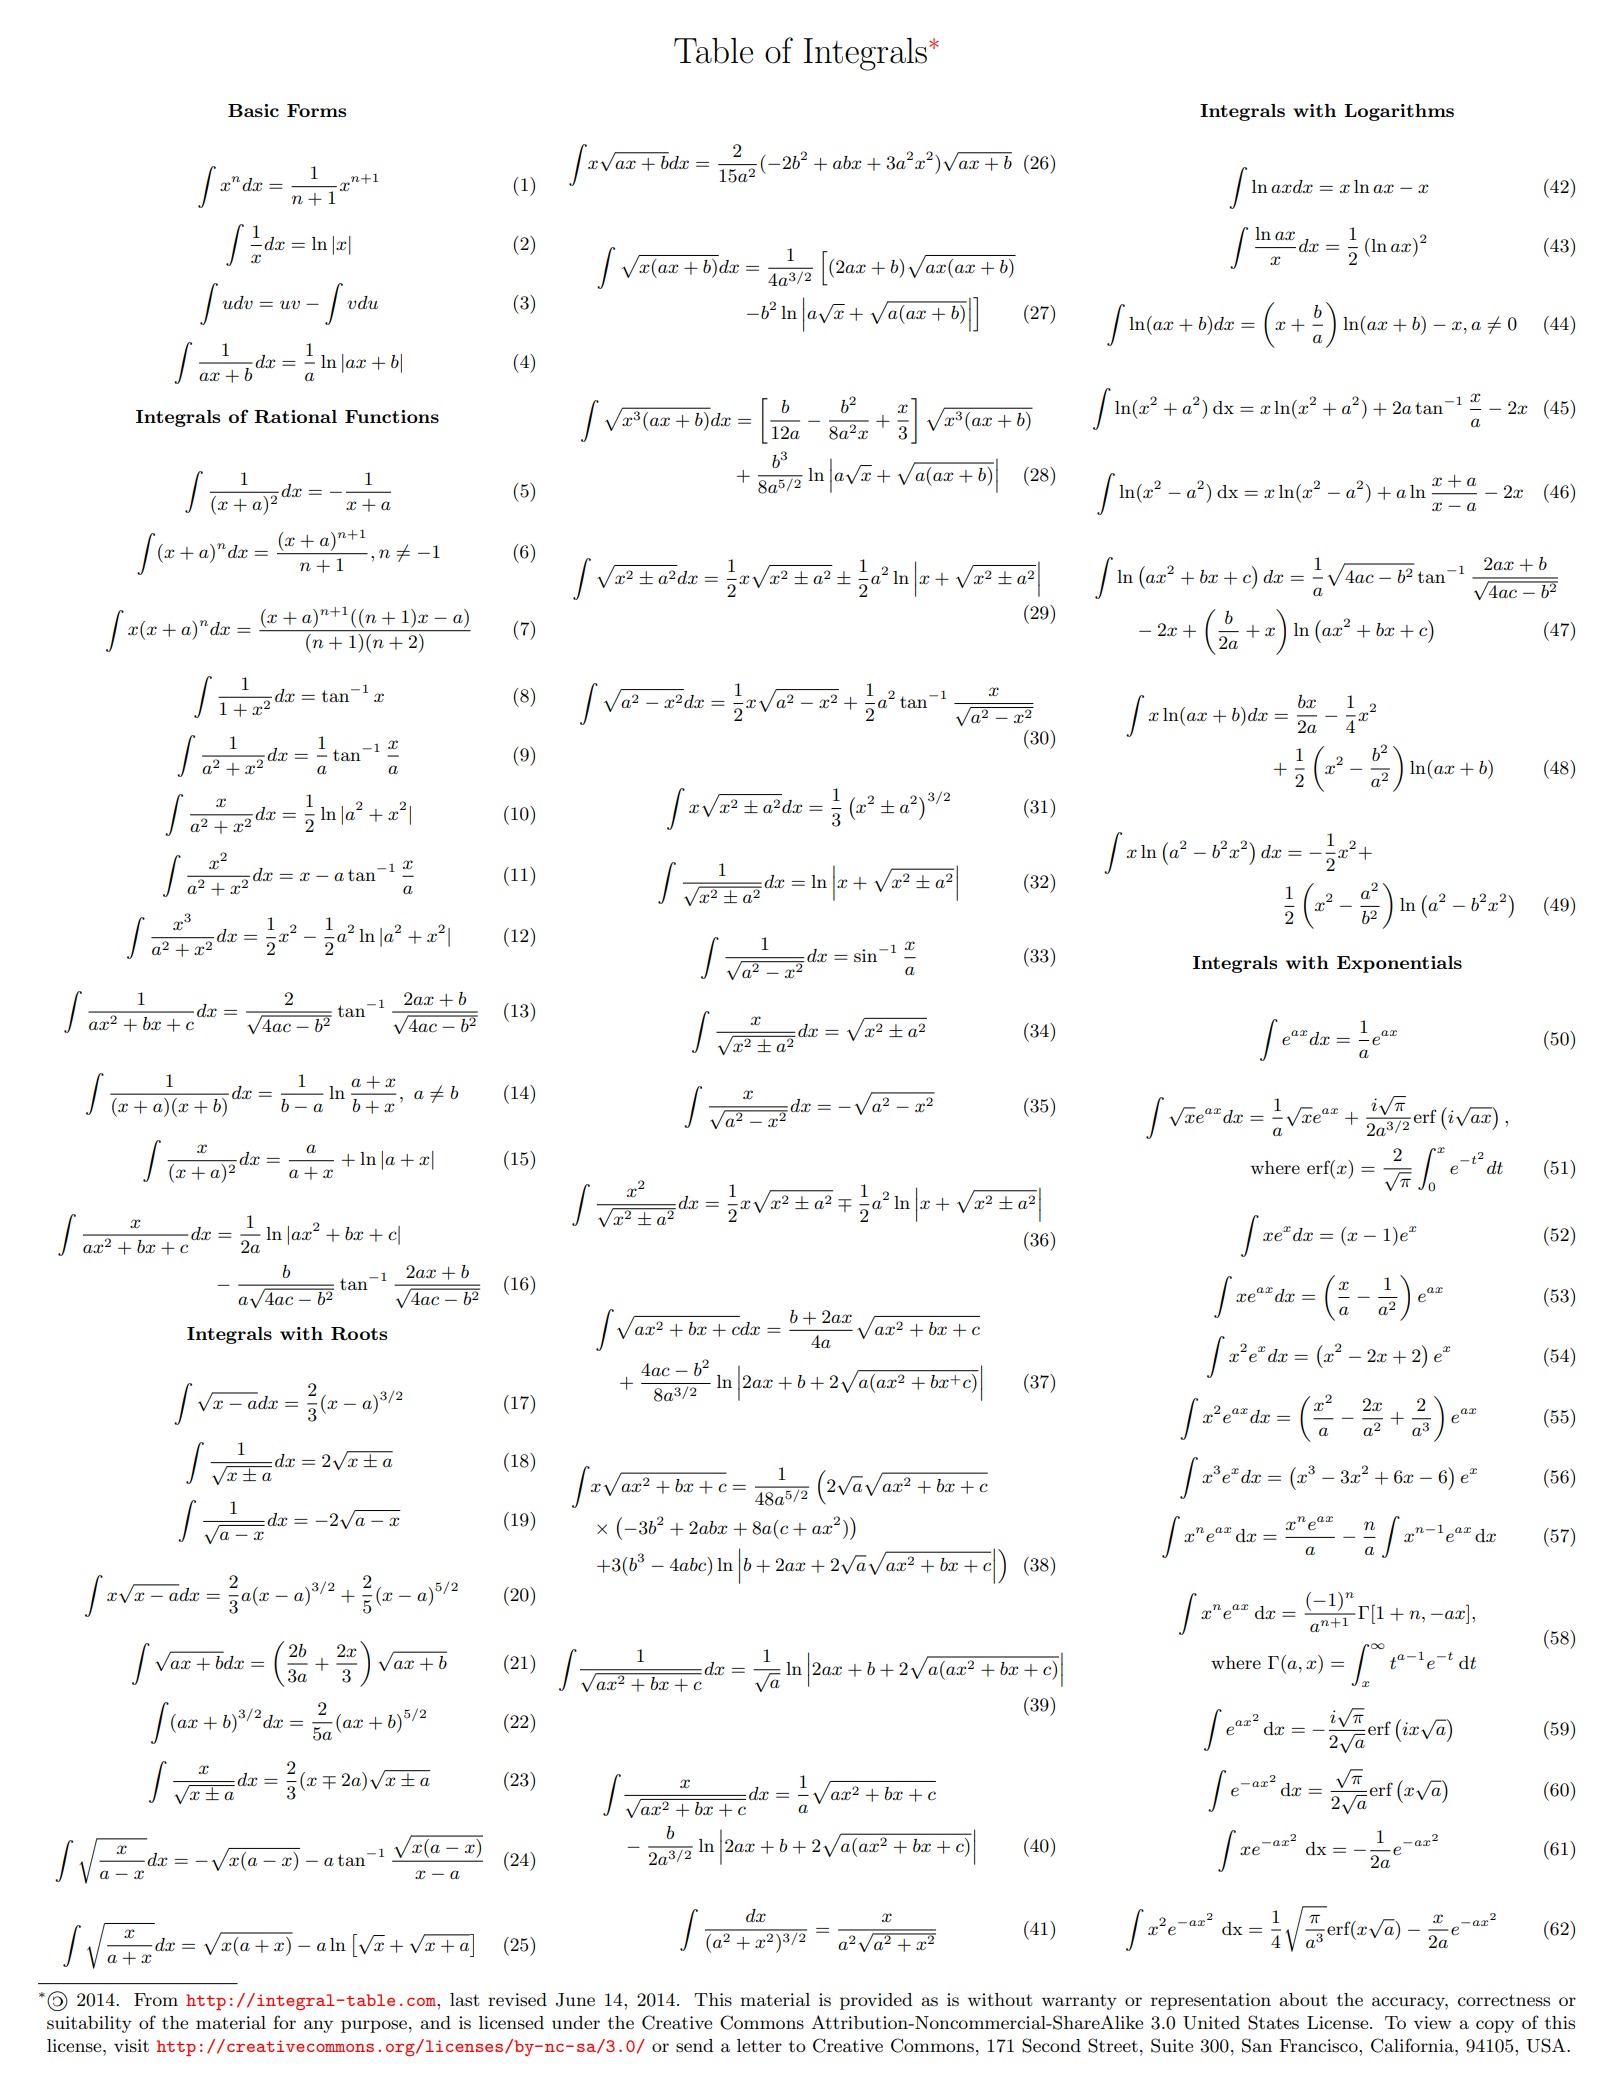 Table of Integrals*
Basic Forms
∫ xⁿ dx = 1/(n + 1) xⁿ⁺¹ (1)
∫ 1/x dx = ln |x| (2)
∫ udv = uv − ∫ vdu (3)
∫ 1/(ax + b) dx = 1/a ln |ax + b| (4)
Integrals of Rational Functions
∫ 1/(x + a)² dx = − 1/(x + a) (5)
∫ (x + a)ⁿ dx = (x + a)ⁿ⁺¹/(n + 1), n ≠ −1 (6)
∫ x(x + a)ⁿ dx = (x + a)ⁿ⁺¹((n + 1)x − a)/((n + 1)(n + 2)) (7)
∫ 1/(1 + x²) dx = tan⁻¹ x (8)
∫ 1/(a² + x²) dx = 1/a tan⁻¹ x/a (9)
∫ x/(a² + x²) dx = 1/2 ln |a² + x²| (10)
∫ x²/(a² + x²) dx = x − a tan⁻¹ x/a (11)
∫ x³/(a² + x²) dx = 1/2 x² − 1/2 a² ln |a² + x²| (12)
∫ 1/(ax² + bx + c) dx = 2/√(4ac − b²) tan⁻¹ (2ax + b)/√(4ac − b²) (13)
∫ 1/((x + a)(x + b)) dx = 1/(b − a) ln (a + x)/(b + x), a ≠ b (14)
∫ x/(x + a)² dx = a/(a + x) + ln |a + x| (15)
∫ x/(ax² + bx + c) dx = 1/(2a) ln |ax² + bx + c|
− b/(a√(4ac − b²)) tan⁻¹ (2ax + b)/√(4ac − b²) (16)
Integrals with Roots
∫ √(x − a) dx = 2/3 (x − a)^(3/2) (17)
∫ 1/√(x ± a) dx = 2√(x ± a) (18)
∫ 1/√(a − x) dx = −2√(a − x) (19)
∫ x√(x − a) dx = 2/3 a(x − a)^(3/2) + 2/5 (x − a)^(5/2) (20)
∫ √(ax + b) dx = (2b/3a + 2x/3) √(ax + b) (21)
∫ (ax + b)^(3/2) dx = 2/(5a) (ax + b)^(5/2) (22)
∫ x/√(x ± a) dx = 2/3 (x ∓ 2a)√(x ± a) (23)
∫ √(x/(a − x)) dx = −√(x(a − x)) − a tan⁻¹ √(x(a − x))/(x − a) (24)
∫ √(x/(a + x)) dx = √(x(a + x)) − a ln [√x + √(x + a)] (25)
∫ x√(ax + b) dx = 2/(15a²) (−2b² + abx + 3a²x²)√(ax + b) (26)
∫ √(x(ax + b)) dx = 1/(4a^(3/2)) [(2ax + b)√(ax(ax + b))
−b² ln |a√x + √(a(ax + b))|] (27)
∫ √(x³(ax + b)) dx = [b/(12a) − b²/(8a²x) + x/3] √(x³(ax + b))
+ b³/(8a^(5/2)) ln |a√x + √(a(ax + b))| (28)
∫ √(x² ± a²) dx = 1/2 x√(x² ± a²) ± 1/2 a² ln |x + √(x² ± a²)|
(29)
∫ √(a² − x²) dx = 1/2 x√(a² − x²) + 1/2 a² tan⁻¹ x/√(a² − x²)
(30)
∫ x√(x² ± a²) dx = 1/3 (x² ± a²)^(3/2) (31)
∫ 1/√(x² ± a²) dx = ln |x + √(x² ± a²)| (32)
∫ 1/√(a² − x²) dx = sin⁻¹ x/a (33)
∫ x/√(x² ± a²) dx = √(x² ± a²) (34)
∫ x/√(a² − x²) dx = −√(a² − x²) (35)
∫ x²/√(x² ± a²) dx = 1/2 x√(x² ± a²) ∓ 1/2 a² ln |x + √(x² ± a²)|
(36)
∫ √(ax² + bx + c) dx = (b + 2ax)/(4a) √(ax² + bx + c)
+ (4ac − b²)/(8a^(3/2)) ln |2ax + b + 2√(a(ax² + bx⁺c))| (37)
∫ x√(ax² + bx + c) = 1/(48a^(5/2)) (2√a√(ax² + bx + c)
× (−3b² + 2abx + 8a(c + ax²))
+3(b³ − 4abc) ln |b + 2ax + 2√a√(ax² + bx + c)|) (38)
∫ 1/√(ax² + bx + c) dx = 1/√a ln |2ax + b + 2√(a(ax² + bx + c))|
(39)
∫ x/√(ax² + bx + c) dx = 1/a √(ax² + bx + c)
− b/(2a^(3/2)) ln |2ax + b + 2√(a(ax² + bx + c))| (40)
∫ dx/(a² + x²)^(3/2) = x/(a²√(a² + x²)) (41)
Integrals with Logarithms
∫ ln axdx = x ln ax − x (42)
∫ (ln ax)/x dx = 1/2 (ln ax)² (43)
∫ ln(ax + b)dx = (x + b/a) ln(ax + b) − x, a ≠ 0 (44)
∫ ln(x² + a²) dx = x ln(x² + a²) + 2a tan⁻¹ x/a − 2x (45)
∫ ln(x² − a²) dx = x ln(x² − a²) + a ln (x + a)/(x − a) − 2x (46)
∫ ln (ax² + bx + c) dx = 1/a √(4ac − b²) tan⁻¹ (2ax + b)/√(4ac − b²)
− 2x + (b/2a + x) ln (ax² + bx + c) (47)
∫ x ln(ax + b)dx = bx/2a − 1/4 x²
+ 1/2 (x² − b²/a²) ln(ax + b) (48)
∫ x ln (a² − b²x²) dx = −1/2 x²+
1/2 (x² − a²/b²) ln (a² − b²x²) (49)
Integrals with Exponentials
∫ e^(ax) dx = 1/a e^(ax) (50)
∫ √x e^(ax) dx = 1/a √x e^(ax) + i√π/(2a^(3/2)) erf (i√(ax)),
where erf(x) = 2/√π ∫₀ˣ e^(−t²) dt (51)
∫ xeˣ dx = (x − 1)eˣ (52)
∫ xe^(ax) dx = (x/a − 1/a²) e^(ax) (53)
∫ x²eˣ dx = (x² − 2x + 2) eˣ (54)
∫ x²e^(ax) dx = (x²/a − 2x/a² + 2/a³) e^(ax) (55)
∫ x³eˣ dx = (x³ − 3x² + 6x − 6) eˣ (56)
∫ xⁿe^(ax) dx = xⁿe^(ax)/a − n/a ∫ xⁿ⁻¹e^(ax) dx (57)
∫ xⁿe^(ax) dx = (−1)ⁿ/aⁿ⁺¹ Γ[1 + n, −ax],
(58)
where Γ(a, x) = ∫ₓ^∞ t^(a−1)e^(−t) dt
∫ e^(ax²) dx = − i√π/(2√a) erf (ix√a) (59)
∫ e^(−ax²) dx = √π/(2√a) erf (x√a) (60)
∫ xe^(−ax²) dx = − 1/(2a) e^(−ax²) (61)
∫ x²e^(−ax²) dx = 1/4 √(π/a³) erf(x√a) − x/(2a) e^(−ax²) (62)
*🄯 2014. From http://integral-table.com, last revised June 14, 2014. This material is provided as is without warranty or representation about the accuracy, correctness or
suitability of the material for any purpose, and is licensed under the Creative Commons Attribution-Noncommercial-ShareAlike 3.0 United States License. To view a copy of this
license, visit http://creativecommons.org/licenses/by-nc-sa/3.0/ or send a letter to Creative Commons, 171 Second Street, Suite 300, San Francisco, California, 94105, USA.